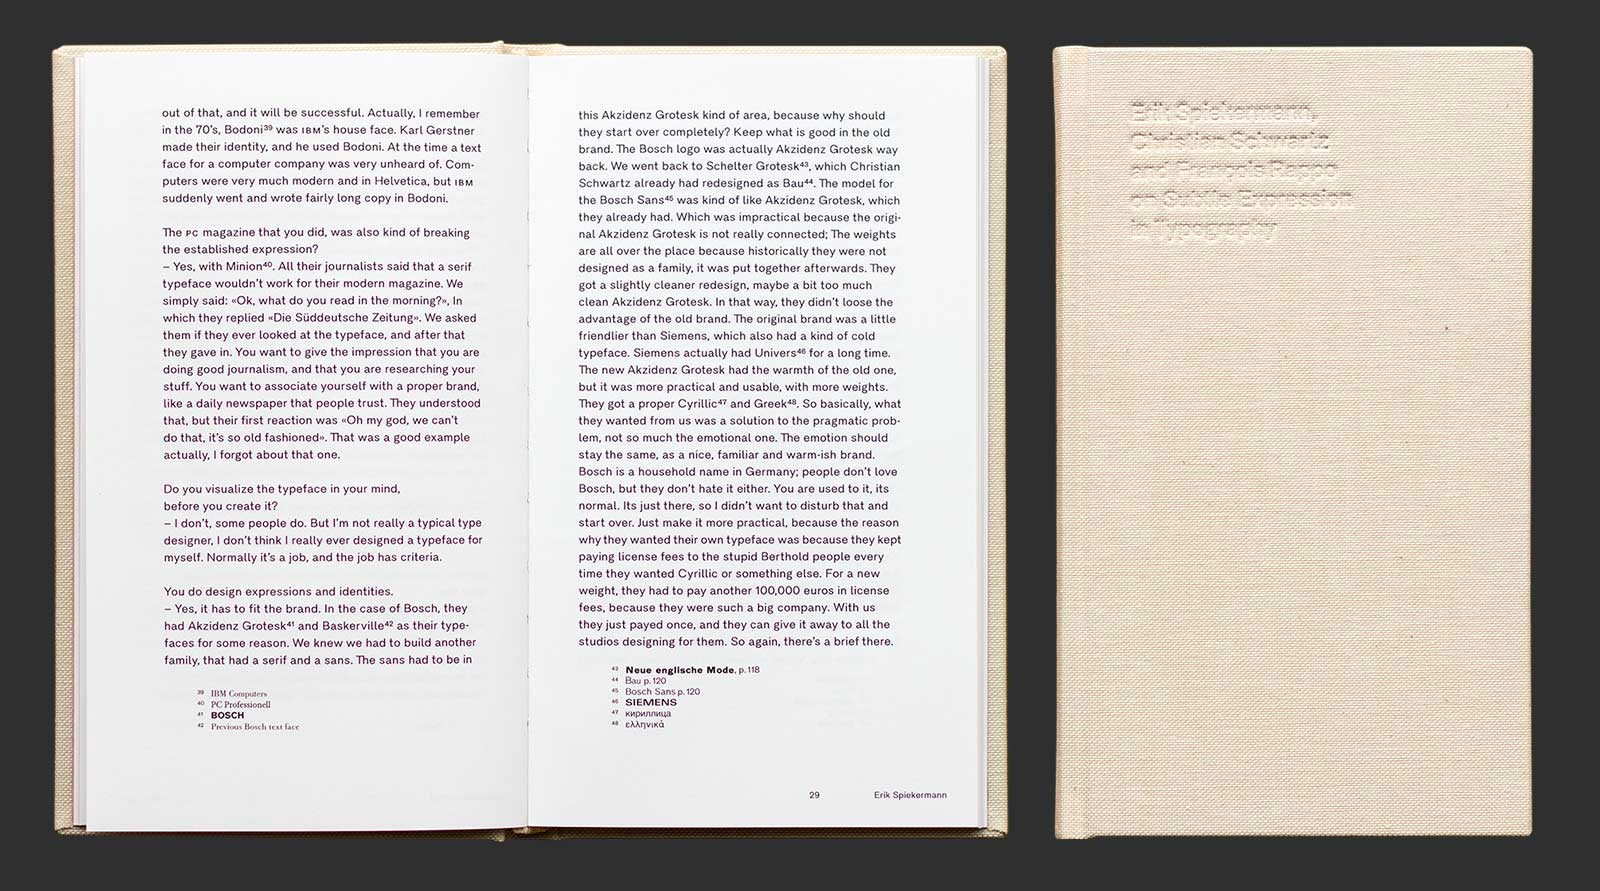 out of that, and it will be successful. Actually, I remember
in the 70's, Bodoni³⁹ was IBM's house face. Karl Gerstner
made their identity, and he used Bodoni. At the time a text
face for a computer company was very unheard of. Com-
puters were very much modern and in Helvetica, but IBM
suddenly went and wrote fairly long copy in Bodoni.
The PC magazine that you did, was also kind of breaking
the established expression?
– Yes, with Minion⁴⁰. All their journalists said that a serif
typeface wouldn't work for their modern magazine. We
simply said: «Ok, what do you read in the morning?», In
which they replied «Die Süddeutsche Zeitung». We asked
them if they ever looked at the typeface, and after that
they gave in. You want to give the impression that you are
doing good journalism, and that you are researching your
stuff. You want to associate yourself with a proper brand,
like a daily newspaper that people trust. They understood
that, but their first reaction was «Oh my god, we can't
do that, it's so old fashioned». That was a good example
actually, I forgot about that one.
Do you visualize the typeface in your mind,
before you create it?
– I don't, some people do. But I'm not really a typical type
designer, I don't think I really ever designed a typeface for
myself. Normally it's a job, and the job has criteria.
You do design expressions and identities.
– Yes, it has to fit the brand. In the case of Bosch, they
had Akzidenz Grotesk⁴¹ and Baskerville⁴² as their type-
faces for some reason. We knew we had to build another
family, that had a serif and a sans. The sans had to be in
39 IBM Computers
40 PC Professionell
41 BOSCH
42 Previous Bosch text face
this Akzidenz Grotesk kind of area, because why should
they start over completely? Keep what is good in the old
brand. The Bosch logo was actually Akzidenz Grotesk way
back. We went back to Schelter Grotesk⁴³, which Christian
Schwartz already had redesigned as Bau⁴⁴. The model for
the Bosch Sans⁴⁵ was kind of like Akzidenz Grotesk, which
they already had. Which was impractical because the origi-
nal Akzidenz Grotesk is not really connected; The weights
are all over the place because historically they were not
designed as a family, it was put together afterwards. They
got a slightly cleaner redesign, maybe a bit too much
clean Akzidenz Grotesk. In that way, they didn't loose the
advantage of the old brand. The original brand was a little
friendlier than Siemens, which also had a kind of cold
typeface. Siemens actually had Univers⁴⁶ for a long time.
The new Akzidenz Grotesk had the warmth of the old one,
but it was more practical and usable, with more weights.
They got a proper Cyrillic⁴⁷ and Greek⁴⁸. So basically, what
they wanted from us was a solution to the pragmatic prob-
lem, not so much the emotional one. The emotion should
stay the same, as a nice, familiar and warm-ish brand.
Bosch is a household name in Germany; people don't love
Bosch, but they don't hate it either. You are used to it, its
normal. Its just there, so I didn't want to disturb that and
start over. Just make it more practical, because the reason
why they wanted their own typeface was because they kept
paying license fees to the stupid Berthold people every
time they wanted Cyrillic or something else. For a new
weight, they had to pay another 100,000 euros in license
fees, because they were such a big company. With us
they just payed once, and they can give it away to all the
studios designing for them. So again, there's a brief there.
43 Neue englische Mode, p. 118
44 Bau p. 120
45 Bosch Sans p. 120
46 SIEMENS
47 кириллица
48 ελληνικά
29 Erik Spiekermann
Erik Spiekermann,
Christian Schwartz
and François Rappo
on Subtle Expression
in Typography